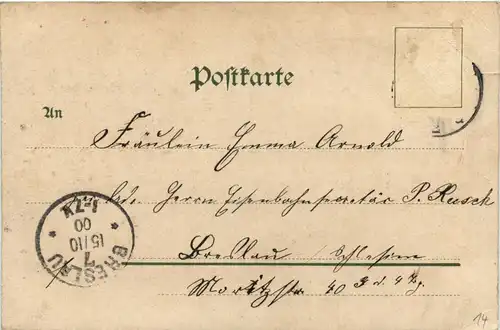 Postkarte
An
Fräulein Emma Arnold
Herrn Eisenbahnsecretär P. Rusch
Breslau Schlesien
Moritzstr 40
BRESLAU
7
15/10
00
1-2N
14